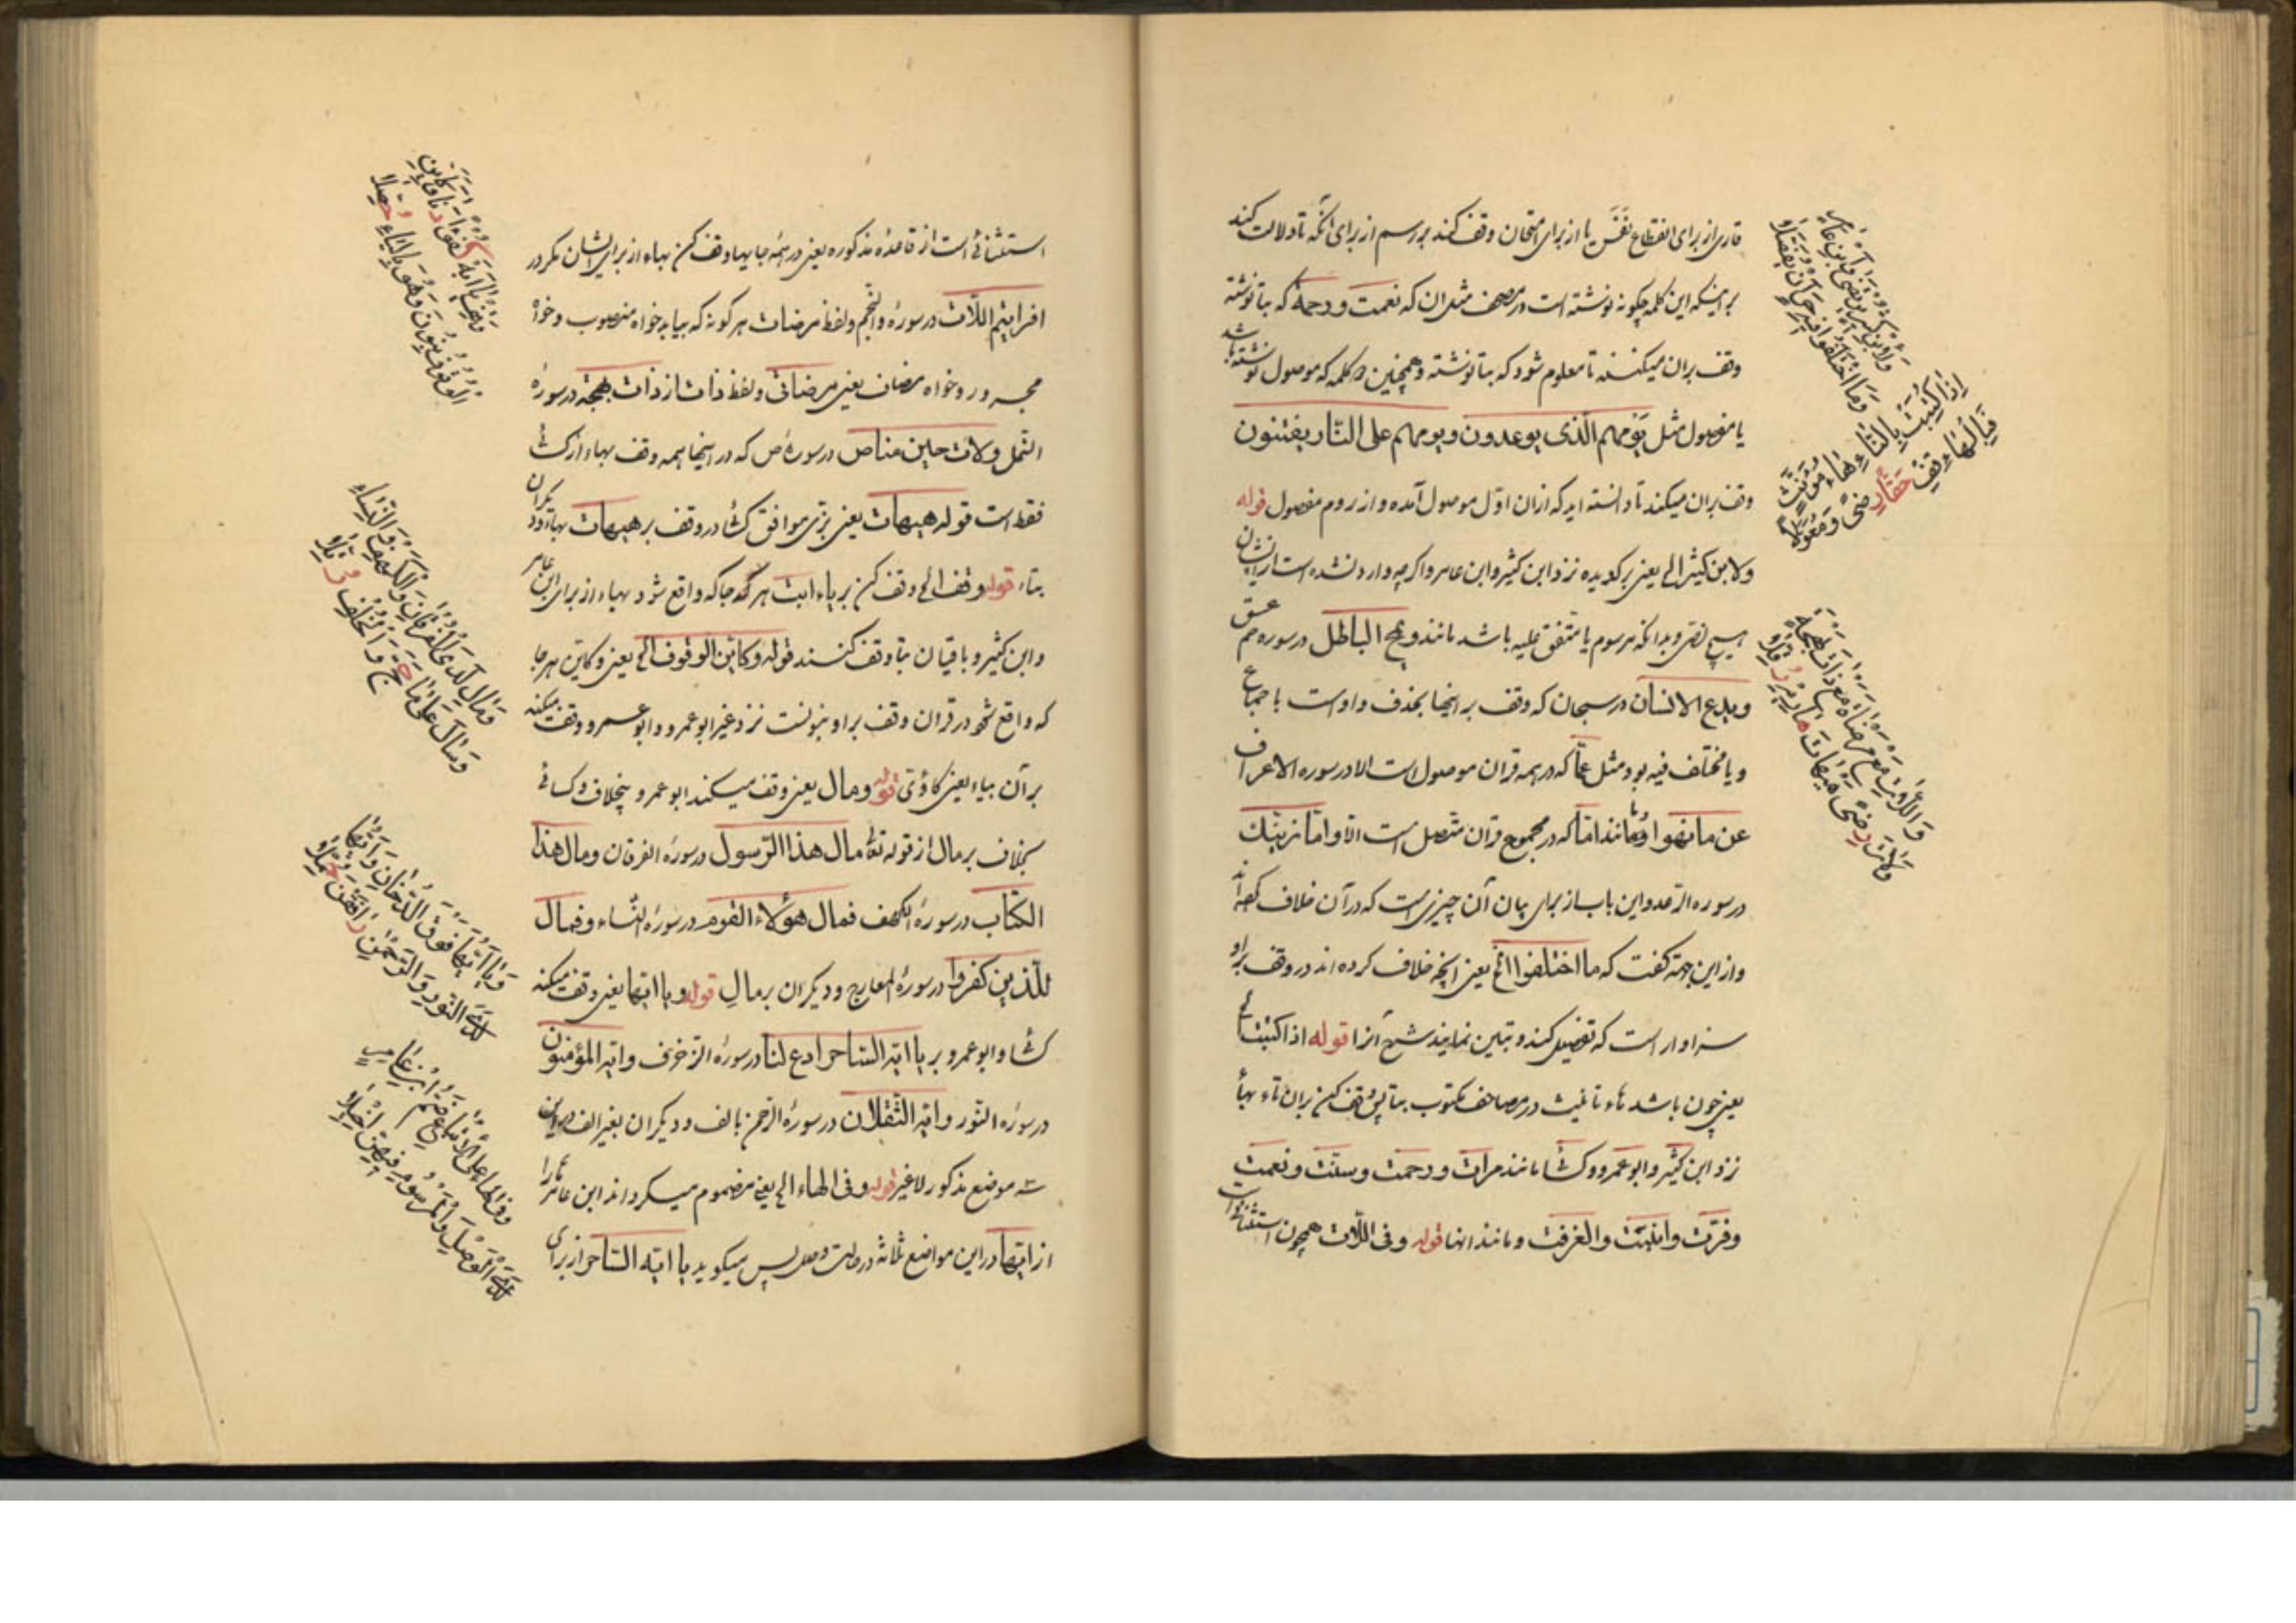 قاری از برای انقطاع نفس یا از برای امتحان وقف کند بر رسم از برای آنکه تا دلالت کند
بر اینکه این کلمه چگونه نوشته است در مصحف مثل ان که نعمت و رحمة که بتا نوشته
وقف بران میکنند تا معلوم شود که بتا نوشته و همچنین هر کلمه که موصول نوشته باشد
یا مفصول مثل یومهم الّذی یوعدون و یوم هم علی النّار یفتنون
وقف بران میکند تا دانسته اید که ازان اوّل موصول آمده و از دوم مفصول قوله
ولابن کثیر الی یعنی برگزیده نزد ابن کثیر و ابن عامر و اگرچه وارد نشده است از ایشان
هیچ نصّی و بدانکه مرسوم یا متفق علیه باشد مانند ویمح الباطل در سوره حم عسق
ویدع الانسان در سبحان که وقف بر اینجا بحذف واو است باجماع
و یا مختلف فیه بود مثل عمّا که در همه قران موصول است الا در سوره الاعراف
عن ما نهوا و مانند امّا که در مجموع قران متصل است الّا و امّا نرینّک
در سوره الرّعد و این باب از برای بیان آن چیزی است که در آن خلاف کرده‌اند
و از این جهة گفت که ما اختلفوا الخ یعنی انچه خلاف کرده اند در وقف براو
سزاوار است که تفصیل کند و تبیین نماید شیخ آنرا قوله اذا کتبت الخ
یعنی چون باشد تاء تانیث در مصاحف مکتوب بتا پس وقف کن بران تاء بهاء
نزد ابن کثیر و ابوعمرو و کسّا مانند مرات و رحمت و سنّت و نعمت
و قرّت و ابنت و الغرفت و مانند انها قوله و فی اللّات همچون استثنائی است
ولابن کثیر یرتضی وابن عامر
وما اختلفوا فیه حر ان یفصّلا
اذا کتبت بالتّاء هاء مؤنّث
فبالهاء قف حقّا رضی ومعوّلا
وفی اللّات مع مرضات مع ذات بهجة
ولات رضی هیهات هادیه رفّلا
استثنائی است از قاعدهٔ مذکوره یعنی در همه جایها وقف کن بهاء از برای ایشان مگر در
افرایتم اللّات در سورهٔ والنّجم و لفظ مرضات هر گونه که بیاید خواه منصوب و خواه
مجرور و خواه مضاف یعنی مرضاتی و لفظ ذات از ذات بهجة در سورهٔ
النّمل و لات حین مناص در سورهٔ ص که در اینجا همه وقف بهاء از کسائی
فقط است قوله هیهات یعنی بزّی موافق کسا در وقف بر هیهات بها و دیگران
بتاء قوله وقف الخ وقف کن بر یاء ابت هر کجا که واقع شود بهاء از برای ابن عامر
و ابن کثیر و باقیان بتا وقف کنند قوله وکاین الوقوف الخ یعنی و کاین هر جا
که واقع شود در قران وقف بر او بنونست نزد غیر ابوعمرو و ابوعمرو وقف میکند
بر آن بیاء یعنی کاوّتی قوله ومال یعنی وقف میکند ابوعمرو بیخلاف و کسائی
بخلاف بر مال از قوله تعالی مال هذا الرّسول در سورهٔ الفرقان و مال هذا
الکتاب در سورهٔ الکهف فمال هؤلاء القوم در سورهٔ النّساء و فمال
للّذین کفروا در سورهٔ المعارج و دیگران بر مالِ قوله و یا ایّها یعنی وقف میکند
کسّا و ابوعمرو بر یا ایّه السّاحر ادع لنا در سورهٔ الزّخرف و ایّه المؤمنون
در سورهٔ النّور و ایّه الثّقلان در سورهٔ الرّحمن بالف و دیگران بغیر الف در این
سه موضع مذکور لاغیر قوله و فی الهاء الی یعنی مضموم میگرداند ابن عامر هاء را
از ایّها در این مواضع ثلاثه در حالت وصل پس میگوید یا ایّه السّاحر از برای
وقف یا ابه کفؤا دنا وکاین
الوقوف بنون وهو بالیاء حصّلا
ومال لدی الفرقان والکهف والنّساء
وسال علی ما حجّ والخلف رتّلا
ویا ایّها فوق الدّخان وایّها
لدی النّور والرّحمن رافقن حمّلا
وفی الها علی الاتباع ضمّ ابن عامر
لدی الوصل والمرسوم فیهنّ اخیلا